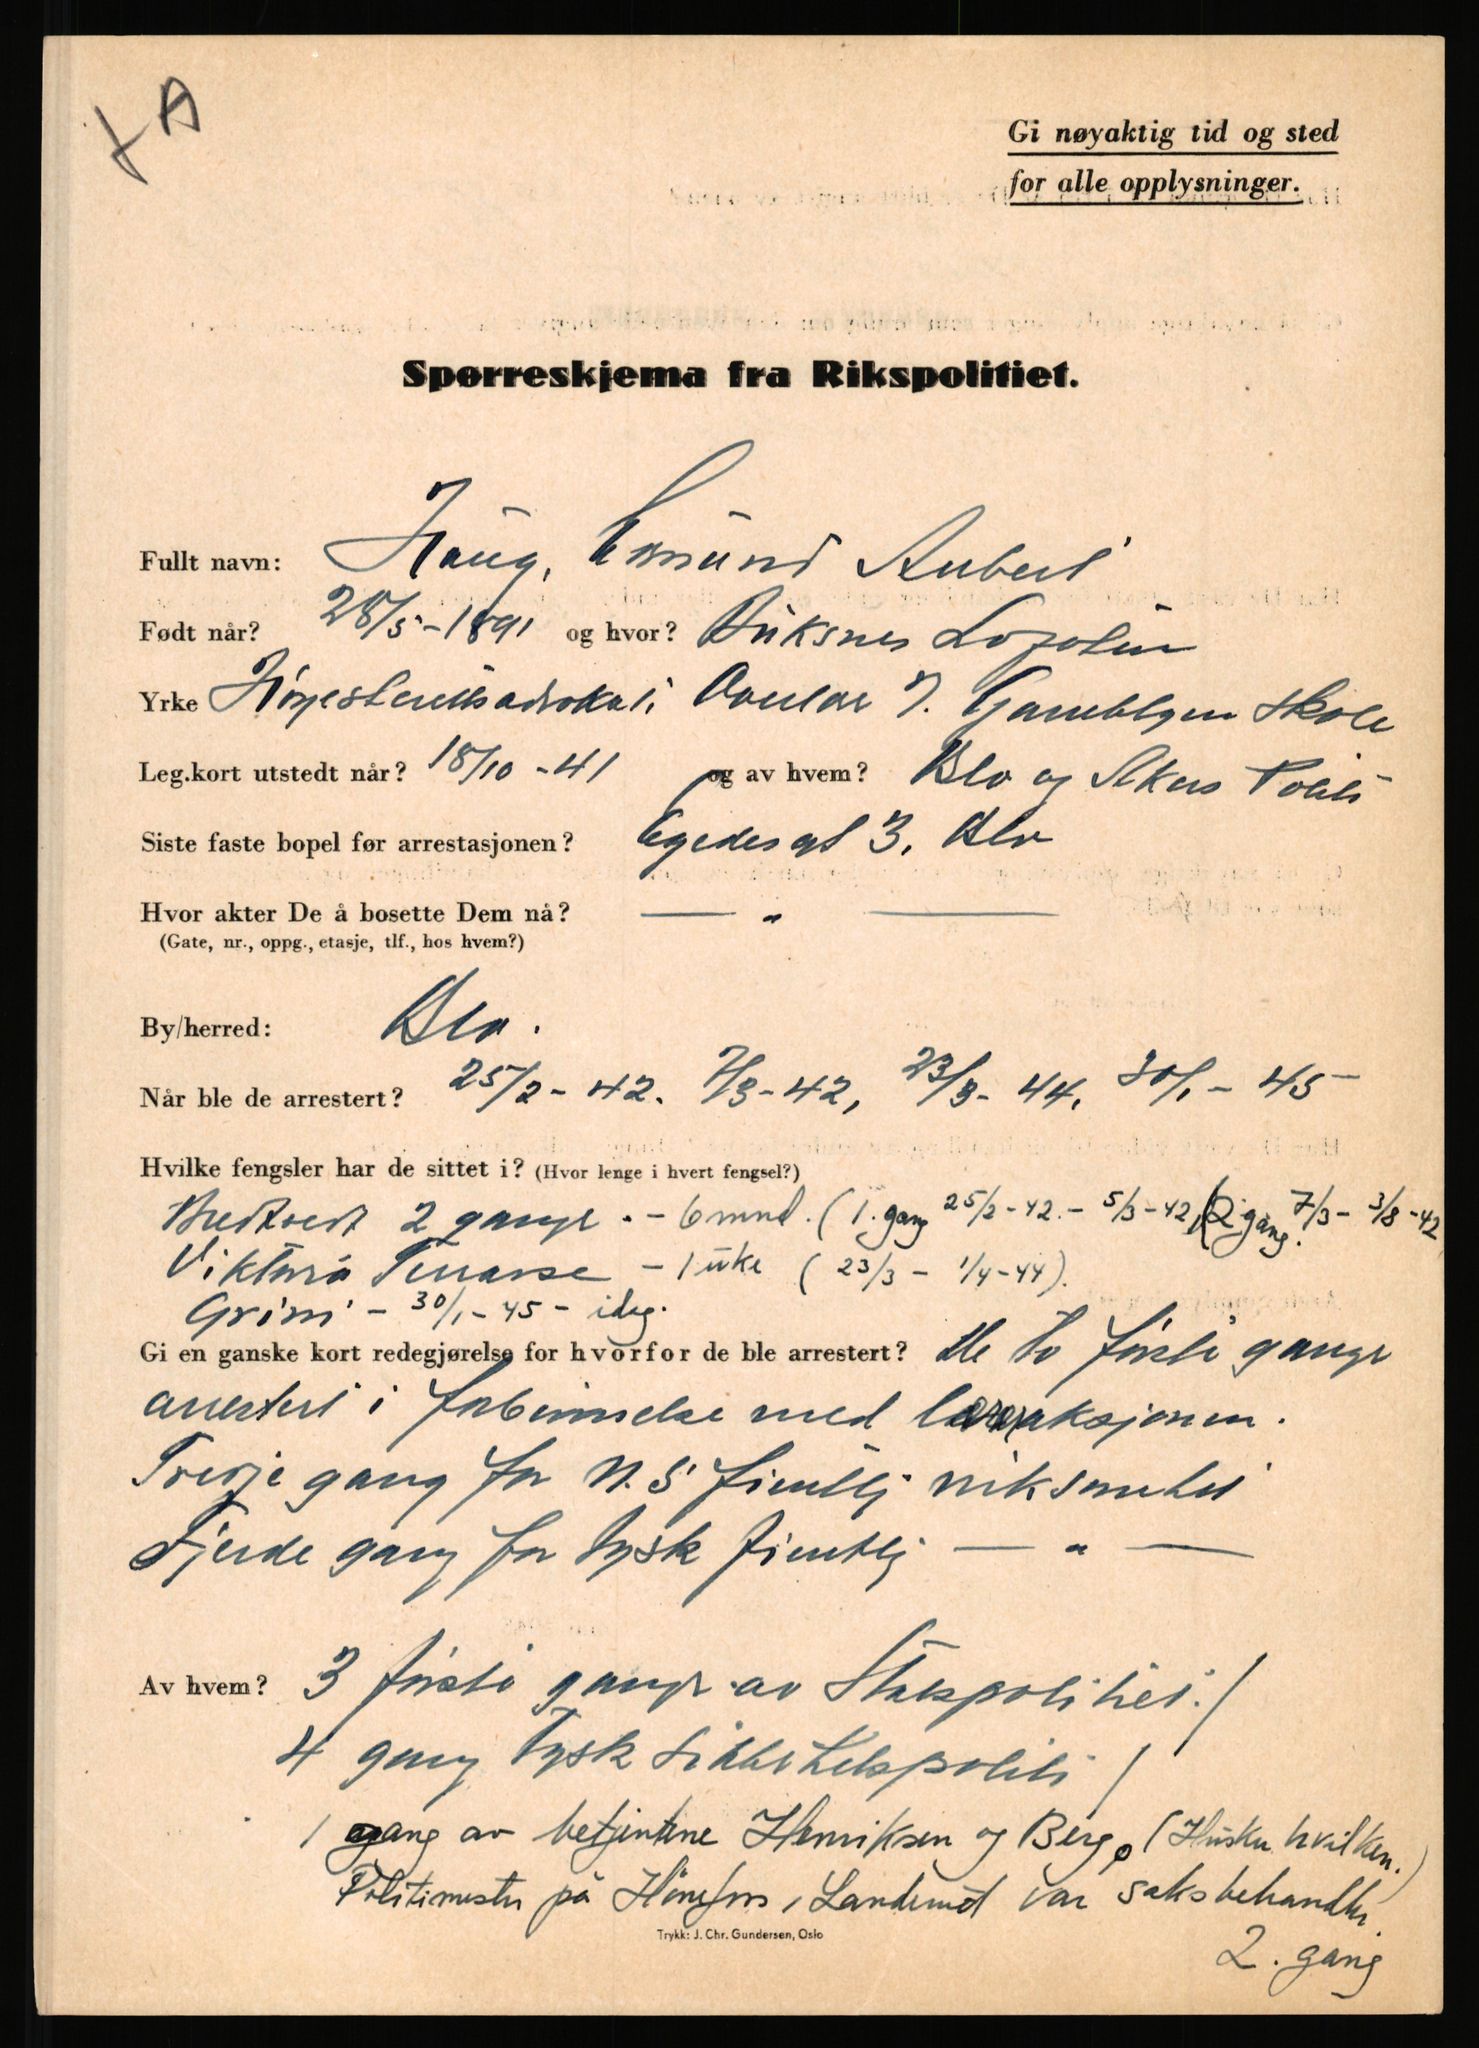 Gi nøyaktig tid og sted
for alle opplysninger.
Spørreskjema fra Rikspolitiet.
Fullt navn: Haug, Edmund Aubert
Født når? 28/5-1891 og hvor? Buksnes Lofoten
Yrke Høyesterettsadvokat, Gamlebyen Skole
Leg.kort utstedt når? 18/10 - 41 og av hvem? Oslo og Akers Politi
Siste faste bopel før arrestasjonen? Egedes gt 3. Oslo
Hvor akter De å bosette Dem nå? — " —
(Gate, nr., oppg., etasje, tlf., hos hvem?)
By/herred: Oslo.
Når ble de arrestert? 25/2 - 42. 7/3 - 42, 23/3 - 44, 30/1 - 45
Hvilke fengsler har de sittet i? (Hvor lenge i hvert fengsel?)
Bredtvedt 2 ganger. - 6 mnd. (1. gang 25/2-42. - 5/3-42, (2 gang. 7/3 - 3/8-42
Viktoria Terrasse - 1 uke (23/3 - 1/4-44).
Grini - 30/1-45 - idag.
Gi en ganske kort redegjørelse for hvorfor de ble arrestert? De to første ganger
arrestert i forbinnelse med læreraksjonen.
Tredje gang for N.S fientlig virksomhet
Fjerde gang for tysk fientlig — " —
Av hvem? 3 første ganger av Statspolitiet. /
4 gang Tysk Sikkerhetspoliti /
1 gang av betjentene Henriksen og Berg, (Husker hvilken.)
Politimester på Hönefoss, Landerud var saksbehandler
2. gang
Trykk: J. Chr. Gundersen, Oslo